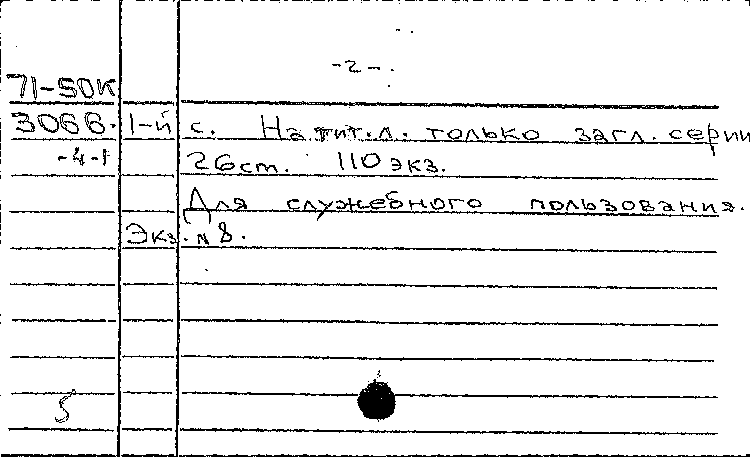 -2-.
71-50К
3066. 1-й с. На тит.л. только загл. серии
-4-1 26 cm. 110 экз.
Для служебного пользования.
Экз. N 8.
5